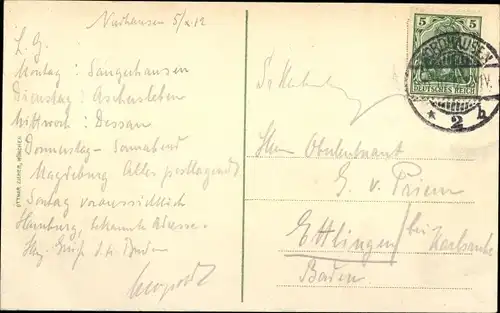 Nordhausen 5/x.12
L. G.
Montag: Sangerhausen
Dienstag: Aschersleben
Mittwoch: Dessau
Donnerstag - Sonnabend
Magdeburg Alles postlagernd
Sontag voraussichtlich
Hamburg, bekannte Adresse.
Hzl. Gruß d. tr. Bruder
Leopold
5 5
DEUTSCHES REICH
NORDHAUSEN
* 2 b
Herrn Oberleutnant
G. v. Priem
Ettlingen bei Karlsruhe
Baden
OTTMAR ZIEHER, MÜNCHEN